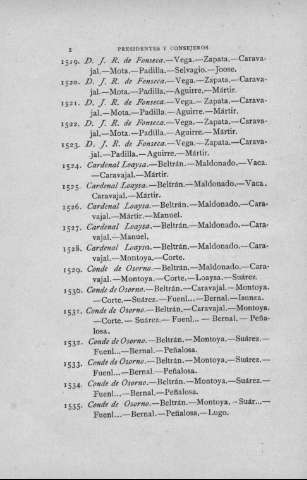 2 PRESIDENTES Y CONSEJEROS
1519. D. J. R. de Fonseca.—Vega.—Zapata.—Carava-
jal.—Mota.—Padilla.—Selvagio.—Joose.
1520. D. J. R. de Fonseca.—Vega.—Zapata.—Carava-
jal.—Mota.—Padilla.—Aguirre.—Mártir.
1521. D. J. R. de Fonseca.—Vega.—Zapata.—Carava-
jal.—Mota.—Padilla.—Aguirre.—Mártir.
1522. D. J. R. de Fonseca.—Vega.—Zapata.—Carava-
jal.—Mota.—Padilla.—Aguirre.—Mártir.
1523. D. J. R. de Fonseca.—Vega.—Zapata.—Carava-
jal.—Padilla.—Aguirre.—Mártir.
1524. Cardenal Loaysa.—Beltrán.—Maldonado.—Vaca.
—Caravajal.—Mártir.
1525. Cardenal Loaysa.—Beltrán.—Maldonado.—Vaca.
Caravajal.—Mártir.
1526. Cardenal Loaysa.—Beltrán.—Maldonado.—Cara-
vajal.—Mártir.—Manuel.
1527. Cardenal Loaysa.—Beltrán.—Maldonado.—Cara-
vajal.—Manuel.
1528. Cardenal Loaysa.—Beltrán.—Maldonado.—Cara-
vajal.—Montoya.—Corte.
1529. Conde de Osorno.—Beltrán.—Maldonado.—Cara-
vajal.—Montoya.—Corte.—Loaysa.—Suárez.
1530. Conde de Osorno.—Beltrán.—Caravajal.—Montoya.
—Corte.—Suárez.—Fuenl...—Bernal.—Isunza.
1531. Conde de Osorno.—Beltrán.—Caravajal.—Montoya.
—Corte.—Suárez.—Fuenl...—Bernal.—Peña-
losa.
1532. Conde de Osorno.—Beltrán.—Montoya.—Suárez.—
Fuenl...—Bernal.—Peñalosa.
1533. Conde de Osorno.—Beltrán.—Montoya.—Suárez.—
Fuenl...—Bernal.—Peñalosa.
1534. Conde de Osorno.—Beltrán.—Montoya.—Suárez.—
Fuenl...—Bernal.—Peñalosa.
1535. Conde de Osorno.—Beltrán.—Montoya.—Suár...—
Fuenl...—Bernal.—Peñalosa.—Lugo.